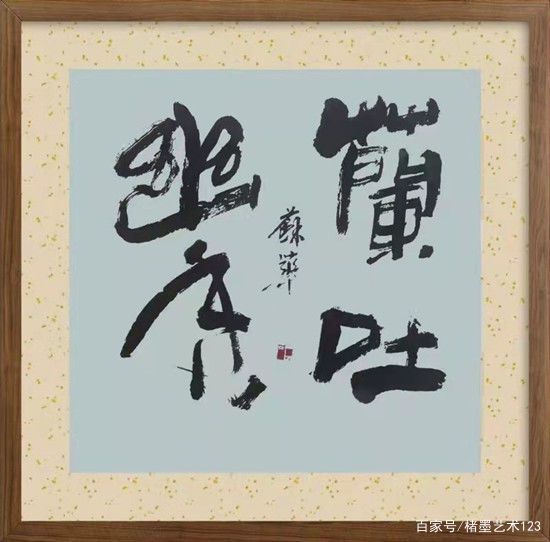 蘭吐
幽芳
蘇華
百家号/楮墨艺术123